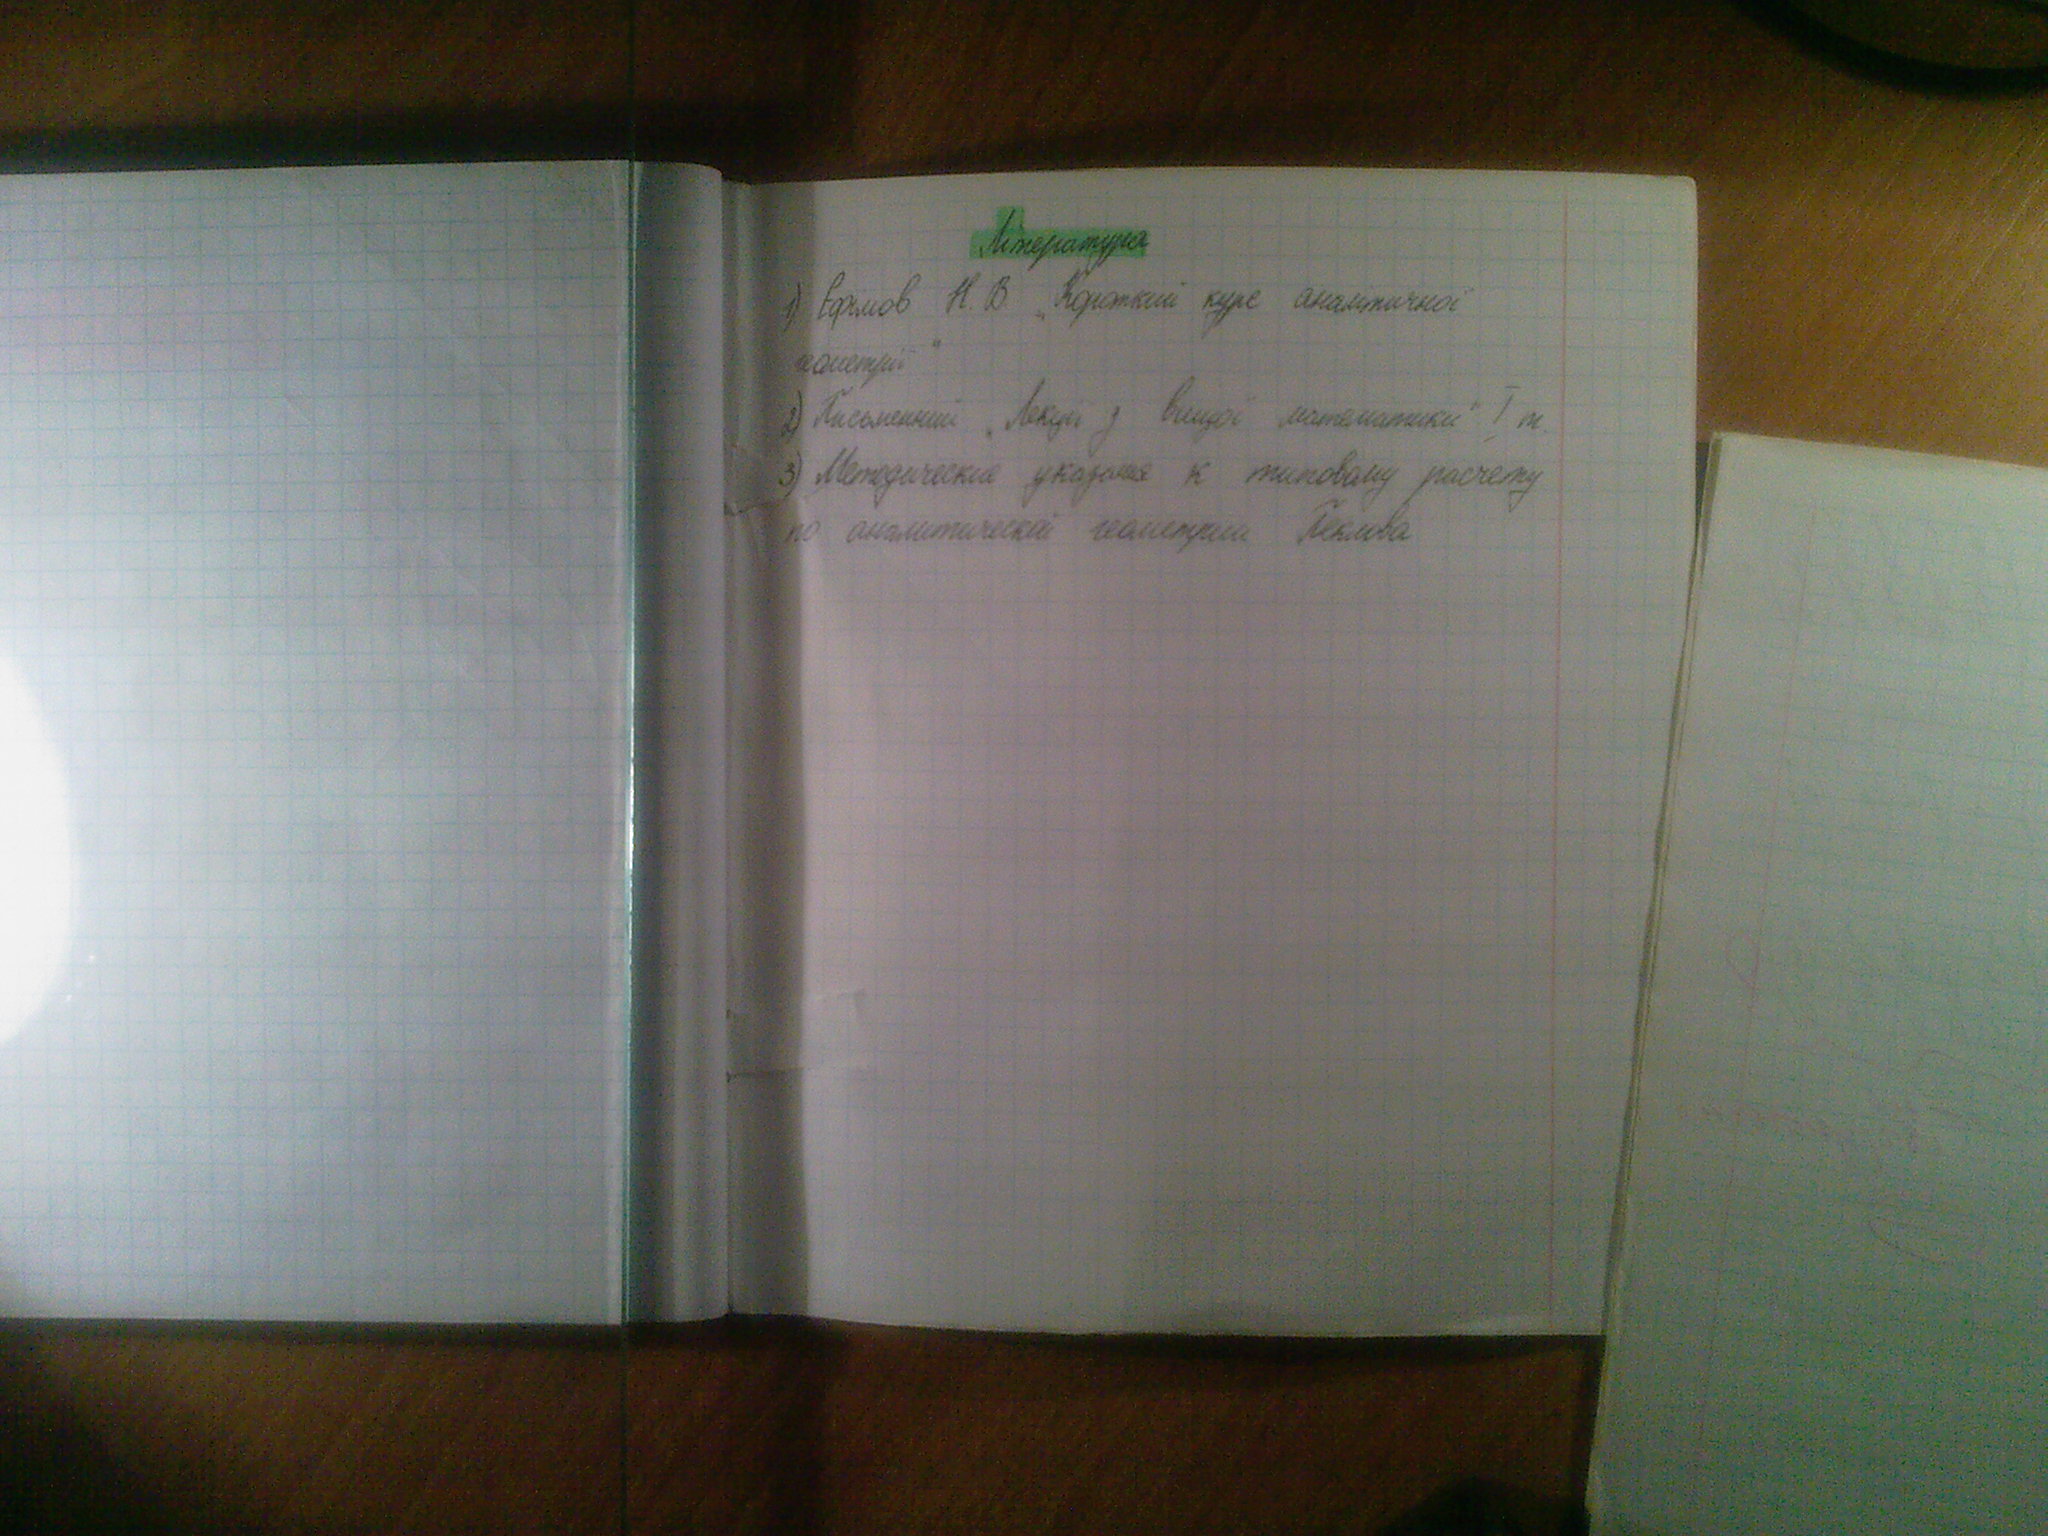 Література
1) Єфімов Н. В „Короткий курс аналітичної
геометрії"
2) Письменний „Лекції з вищої математики" I т.
3) Методические указания к типовому расчету
по аналитической геометрии